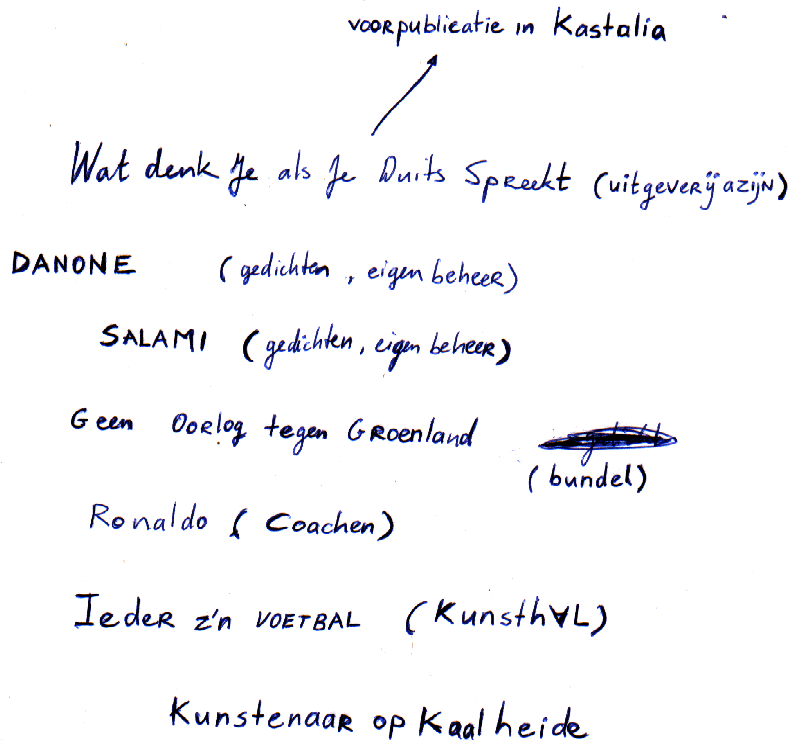 voorpublicatie in Kastalia
Wat denk Je als Je Duits Spreekt (uitgeverij azijn)
DANONE (gedichten, eigen beheer)
SALAMI (gedichten, eigen beheer)
Geen Oorlog tegen Groenland
(bundel)
Ronaldo (Coachen)
Ieder z'n VOETBAL (Kunsth∀L)
Kunstenaar op Kaalheide